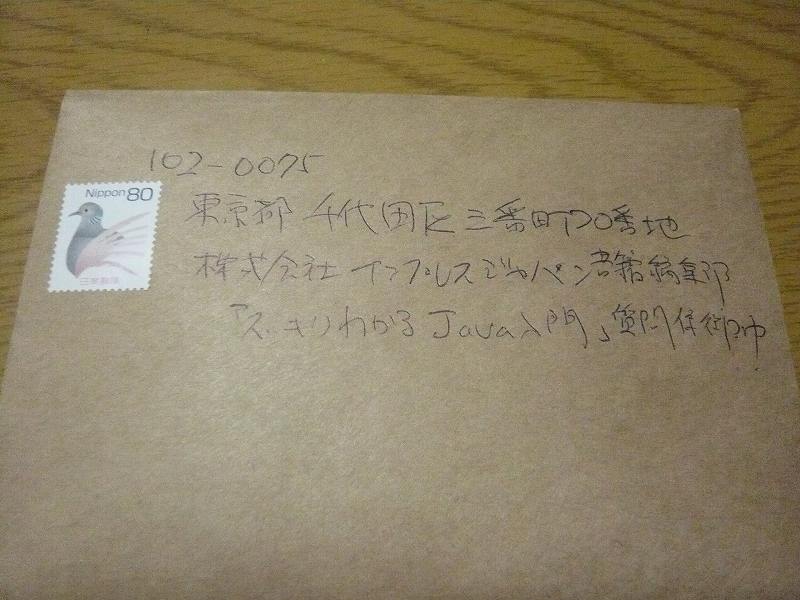 102-0075
Nippon 80
東京都 千代田区 三番町20番地
株式会社 インプレスジャパン 書籍編集部
『スッキリわかる Java入門』質問係御中
日本郵便